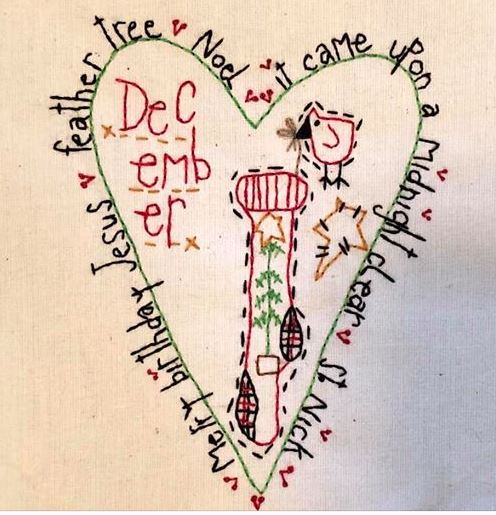 Dec
emb
er
feather tree Noel
it came upon a midnight clear
St Nick
Merry birthday Jesus